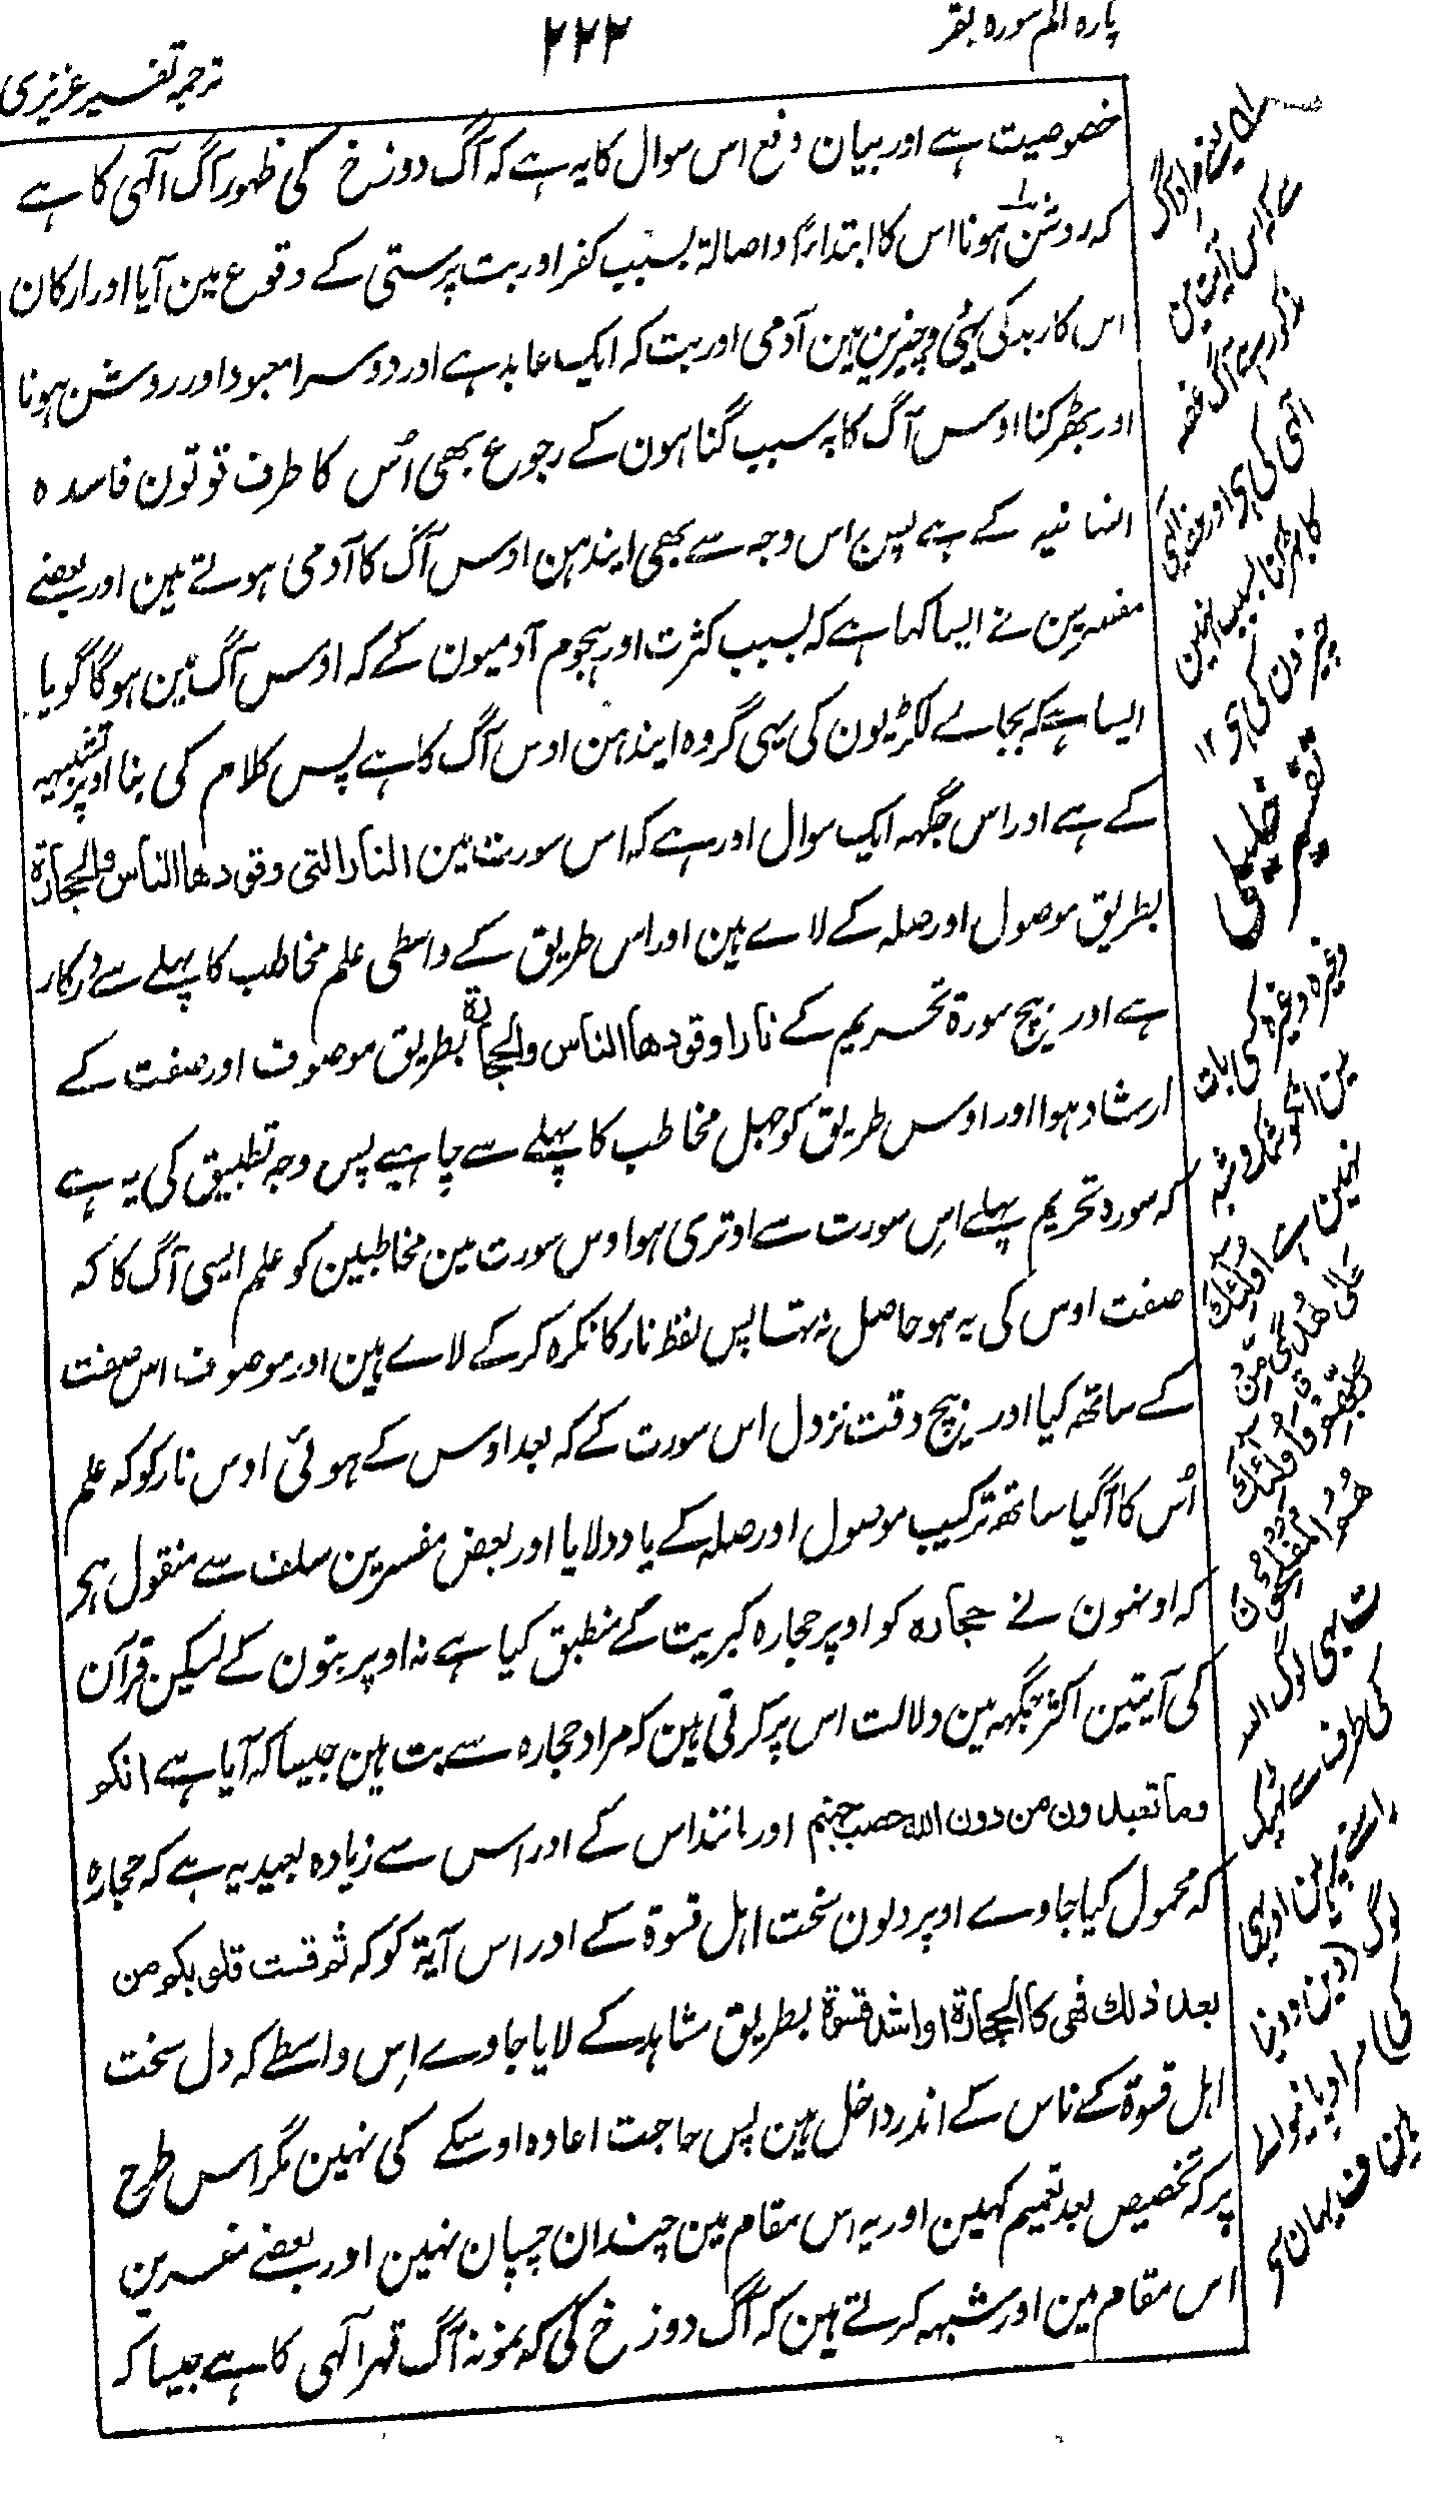 پاره الم سوره بقر
۲۲۲
ترجمہ تفسیر عزیزی
خصوصیت ہے اور بیان دفع اس سوال کا یہ ہے کہ آگ دوزخ کی ظہور آگ آلہی کا ہے
کہ روشن ہونا اس کا ابتداءً واصالۃً بسبب کفر اور بت پرستی کے وقوع مین آیا اور ارکان
اس کار بد کی یہی دو چیزین ہین آدمی اور بت کہ ایک عابد ہے اور دوسرا معبود اور روشن ہونا
اور بھڑکنا اوس آگ کا بسبب گناہون کے رجوع بھی اُس کا طرف قوتون فاسدہ
انسانیہ کے ہے پس اس وجہ سے بھی ایندہن اوس آگ کا آدمی ہوتے ہین اور بعضے
مفسرین نے ایسا کہا ہے کہ بسبب کثرت اور ہجوم آدمیون کے کہ اوس آگ مین ہوگا گویا
ایسا ہے کہ بجاے لکڑیون کی یہی گروہ ایندہن اوس آگ کا ہے پس کلام کی بنا اوپر تشبیہ
کے ہے اور اس جگہہ ایک سوال اور ہے کہ اس سورت مین النار التی وقودها الناس والحجارة
بطریق موصول اور صلہ کے لاے ہین اور اس طریق کے واسطی علم مخاطب کا پہلے سے درکار
ہے اور بیچ سورۃ تحریم کے نارا وقودها الناس والحجارة بطریق موصوف اور صفت کے
ارشاد ہوا اور اوس طریق کو جہل مخاطب کا پہلے سے چاہیے پس وجہ تطبیق کی یہ ہے
کہ سورہ تحریم پہلے اس سورت سے اوتری ہو اوس سورت مین مخاطبین کو علم ایسی آگ کا کہ
صفت اوس کی یہ ہو حاصل نہ تہا پس لفظ نار کا نکرہ کرکے لاے ہین اور موصوف اس صفت
کے ساتھ کیا اور بیچ وقت نزول اس سورت کے کہ بعد اوس کے ہوئی اوس نار کو کہ علم
اُس کا آگیا ساتھ ترکیب موصول اور صلہ کے یاد دلایا اور بعض مفسرین سلف سے منقول ہر
کہ اونہون نے حجارہ کو اوپر حجارہ کبریت کے منطبق کیا ہے نہ اوپر بتون کے لیکن قرآن
کی آیتین اکثر جگہہ مین دلالت اس پر کرتی ہین کہ مراد حجارہ سے بت ہین جیسا کہ آیا ہے انکم
وما تعبدون من دون الله حصب جہنم اور مانند اس کے اور اس سے زیادہ بعید یہ ہے کہ حجارہ
کہ محمول کیا جاوے اوپر دلون سخت اہل قسوۃ کے اور اس آیۃ کو کہ ثم قست قلوبکم من
بعد ذلك فهی کالحجارة او اشد قسوة بطریق شاہد کے لایا جاوے اس واسطے کہ دل سخت
اہل قسوۃ کے ناس کے اندر داخل ہین پس حاجت اعادہ اوسکے کی نہین مگر اس طرح
پر کہ تخصیص بعد تعمیم کہین اور یہ اس مقام مین چندان چسپان نہین اور بعضے مفسرین
اس مقام مین اور شبہہ کرتے ہین کہ آگ دوزخ کی کہ نمونہ آگ قہر آلہی کا ہے جیسا کہ
مذکور
آگ غضب
آلہی کی ہی اور غضب آلہی
کا بھڑکنا بسبب انہین
چیزون کی ہی ۱۲
تقسیم
وغیرہ وغیرہ کی بات
نہین ہے اولئك
علی هدی من
ربهم واولئك
هم المفلحون
یہی لوگ اللہ
کی طرف سے ٹھیک
لوگ دین و دنیا